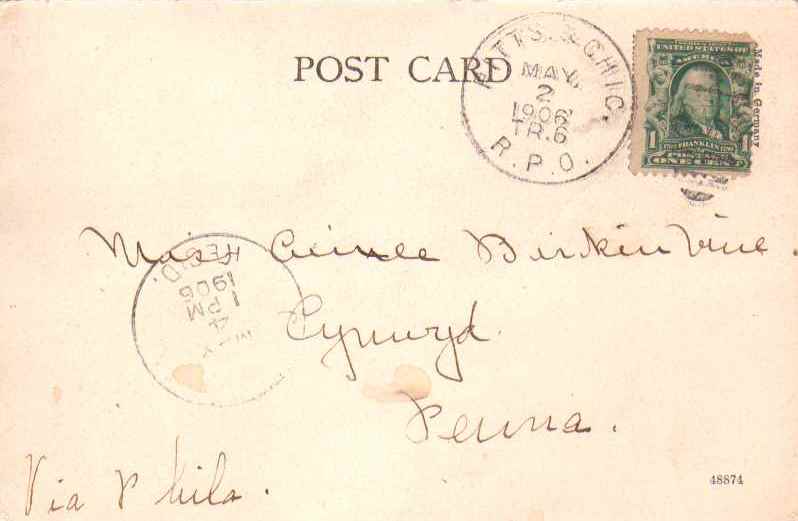 POST CARD
PITTS. & CHIC.
MAY
2
1906
TR.6
R.P.O.
UNITED STATES OF
AMERICA
1 FRANKLIN 1
POSTAGE
ONE CENT
Made in Germany
Miss Birkinbine.
REC'D.
1906
1
PM
4
Cynwyd.
Penna.
Via Phila.
48874